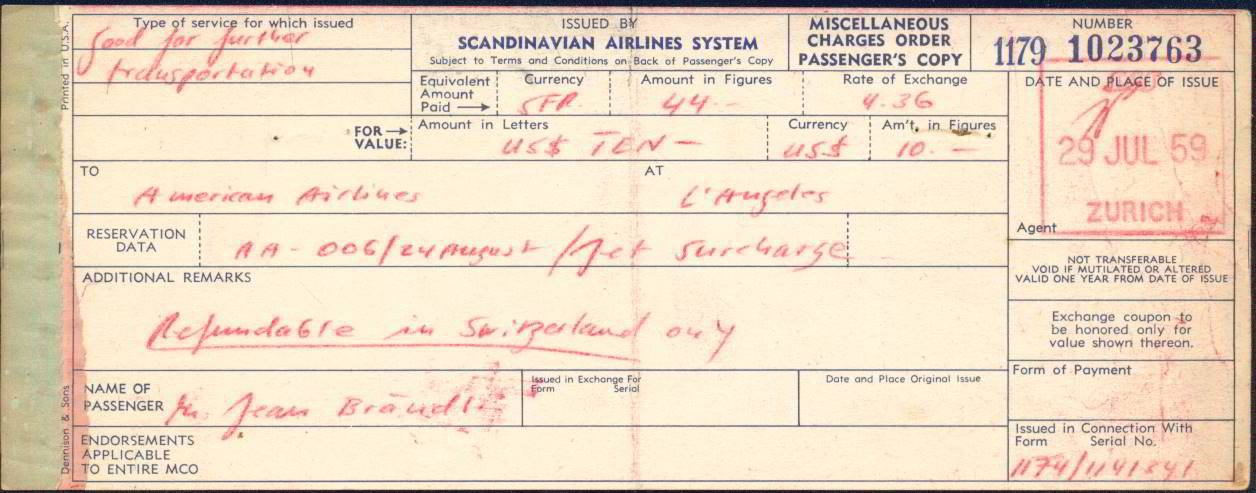 Printed in U.S.A.
Type of service for which issued
Good for further
transportation
ISSUED BY
SCANDINAVIAN AIRLINES SYSTEM
Subject to Terms and Conditions on Back of Passenger's Copy
MISCELLANEOUS
CHARGES ORDER
PASSENGER'S COPY
NUMBER
1179 1023763
Equivalent
Amount
Paid
Currency
SFR.
Amount in Figures
44.-
Rate of Exchange
4.36
DATE AND PLACE OF ISSUE
29 JUL 59
ZURICH
Agent
FOR
VALUE:
Amount in Letters
US$ TEN -
Currency
US$
Am't. in Figures
10.-
TO
American Airlines
AT
L'Angeles
RESERVATION
DATA
AA - 006/24 August / Jet surcharge
NOT TRANSFERABLE
VOID IF MUTILATED OR ALTERED
VALID ONE YEAR FROM DATE OF ISSUE
ADDITIONAL REMARKS
Refundable in Switzerland only
Exchange coupon to
be honored only for
value shown thereon.
Dennison & Sons
NAME OF
PASSENGER
Mr. Jean Brändli
Issued in Exchange For
Form Serial
Date and Place Original Issue
Form of Payment
ENDORSEMENTS
APPLICABLE
TO ENTIRE MCO
Issued in Connection With
Form Serial No.
1174/1141841